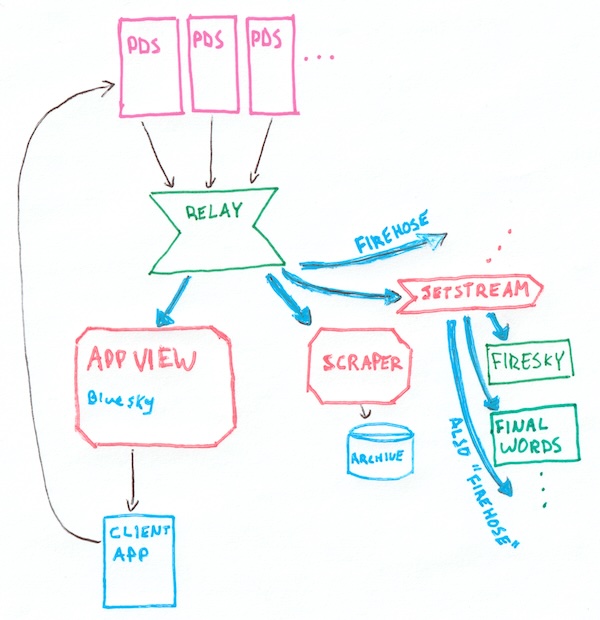 PDS
PDS
PDS
...
RELAY
FIREHOSE
JETSTREAM
APP VIEW
Bluesky
SCRAPER
FIRESKY
ARCHIVE
FINAL
WORDS
ALSO "FIREHOSE"
CLIENT
APP